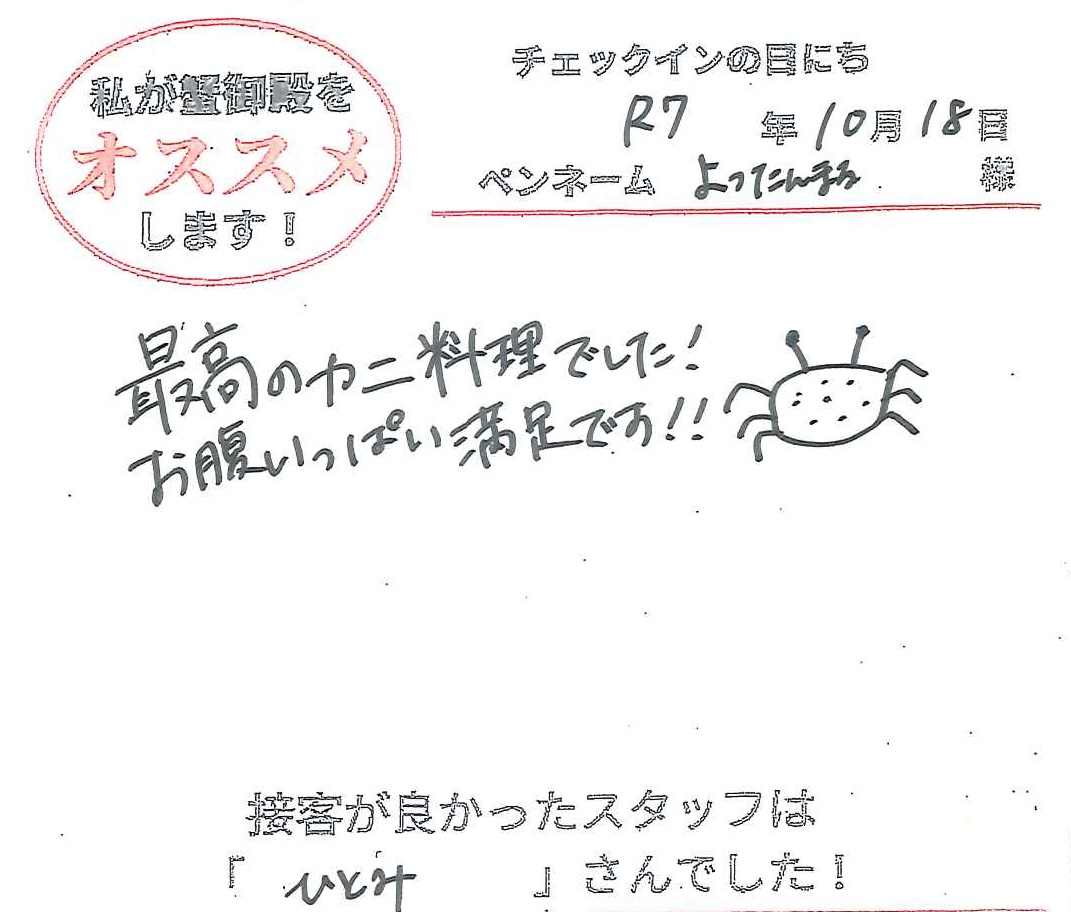 私が蟹御殿を
オススメ
します！
チェックインの日にち
R7 年 10月 18日
ペンネーム よったんまる 様
最高のカニ料理でした！
お腹いっぱい満足です!!
接客が良かったスタッフは
「ひとみ」さんでした！